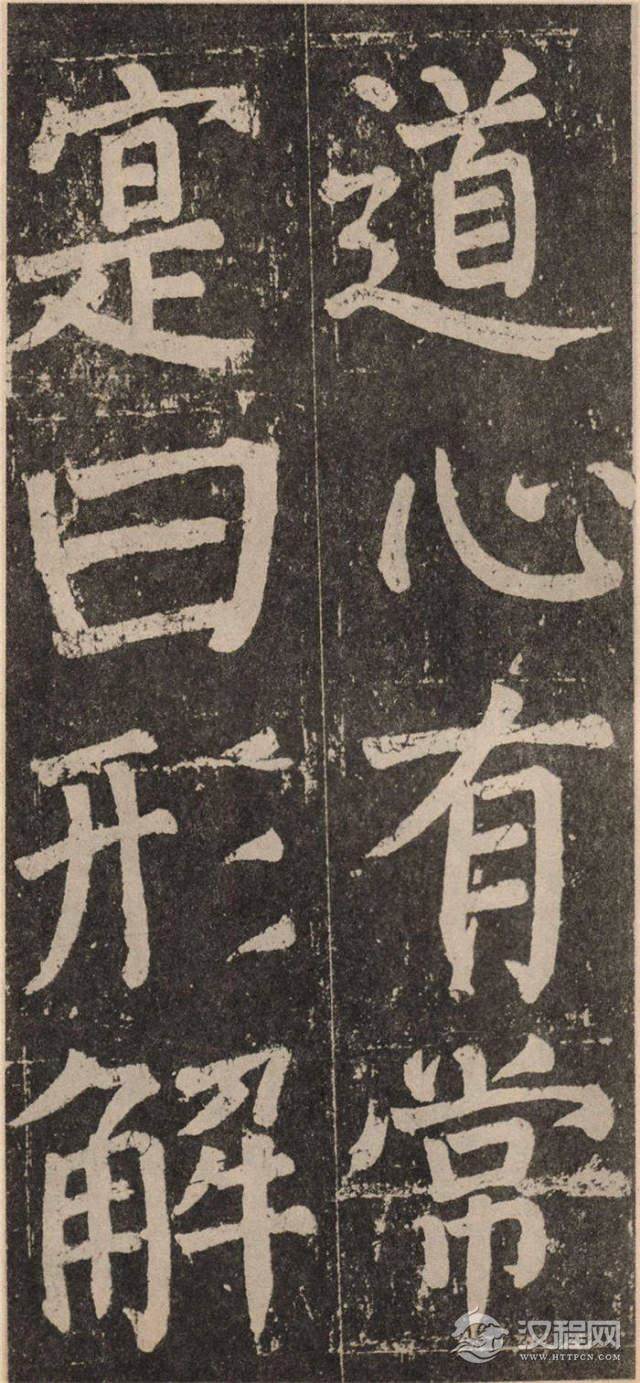 道心有常
寔曰形解
汉程网
WWW.HTTPCN.COM